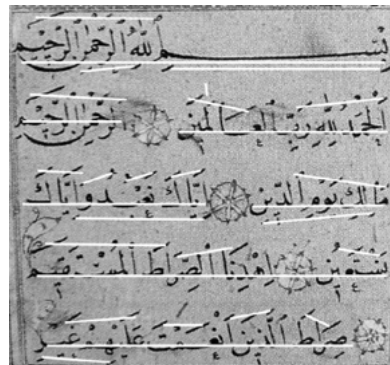 بِسْمِ ٱللَّهِ ٱلرَّحْمَٰنِ ٱلرَّحِيمِ
ٱلْحَمْدُ لِلَّهِ رَبِّ ٱلْعَالَمِينَ ٱلرَّحْمَٰنِ ٱلرَّحِيمِ
مَالِكِ يَوْمِ ٱلدِّينِ إِيَّاكَ نَعْبُدُ وَإِيَّاكَ
نَسْتَعِينُ ٱهْدِنَا ٱلصِّرَاطَ ٱلْمُسْتَقِيمَ
صِرَاطَ ٱلَّذِينَ أَنْعَمْتَ عَلَيْهِمْ غَيْرِ